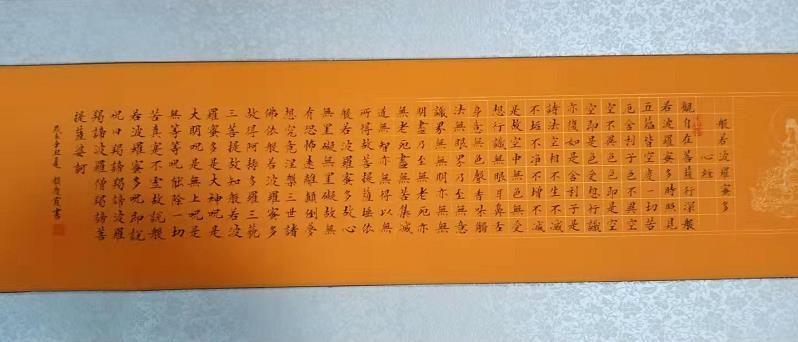 般若波羅蜜多
心經
觀自在菩薩行深般
若波羅蜜多時照見
五蘊皆空度一切苦
厄舍利子色不異空
空不異色色即是空
空即是色受想行識
亦復如是舍利子是
諸法空相不生不滅
不垢不淨不增不減
是故空中無色無受
想行識無眼耳鼻舌
身意無色聲香味觸
法無眼界乃至無意
識界無無明亦無無
明盡乃至無老死亦
無老死盡無苦集滅
道無智亦無得以無
所得故菩提薩埵依
般若波羅蜜多故心
無罣礙無罣礙故無
有恐怖遠離顛倒夢
想究竟涅槃三世諸
佛依般若波羅蜜多
故得阿耨多羅三藐
三菩提故知般若波
羅蜜多是大神呪是
大明呪是無上呪是
無等等呪能除一切
苦真實不虛故說般
若波羅蜜多呪即說
呪曰羯諦羯諦波羅
羯諦波羅僧羯諦菩
提薩婆訶
書